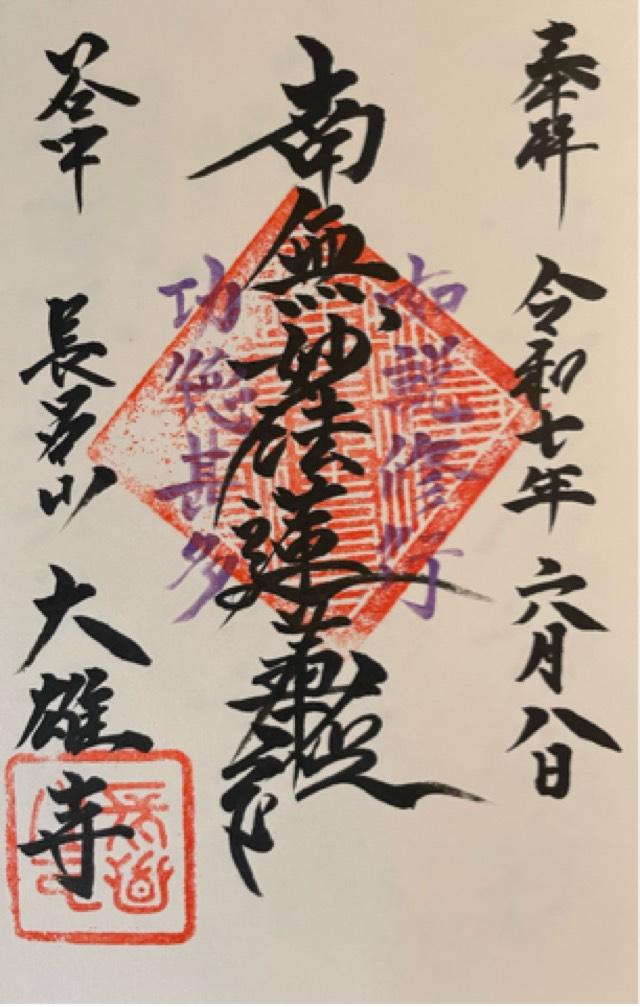 奉拝 令和七年 六月八日
如説修行
南無妙法蓮華經
功徳甚多
谷中 長昌山 大雄寺